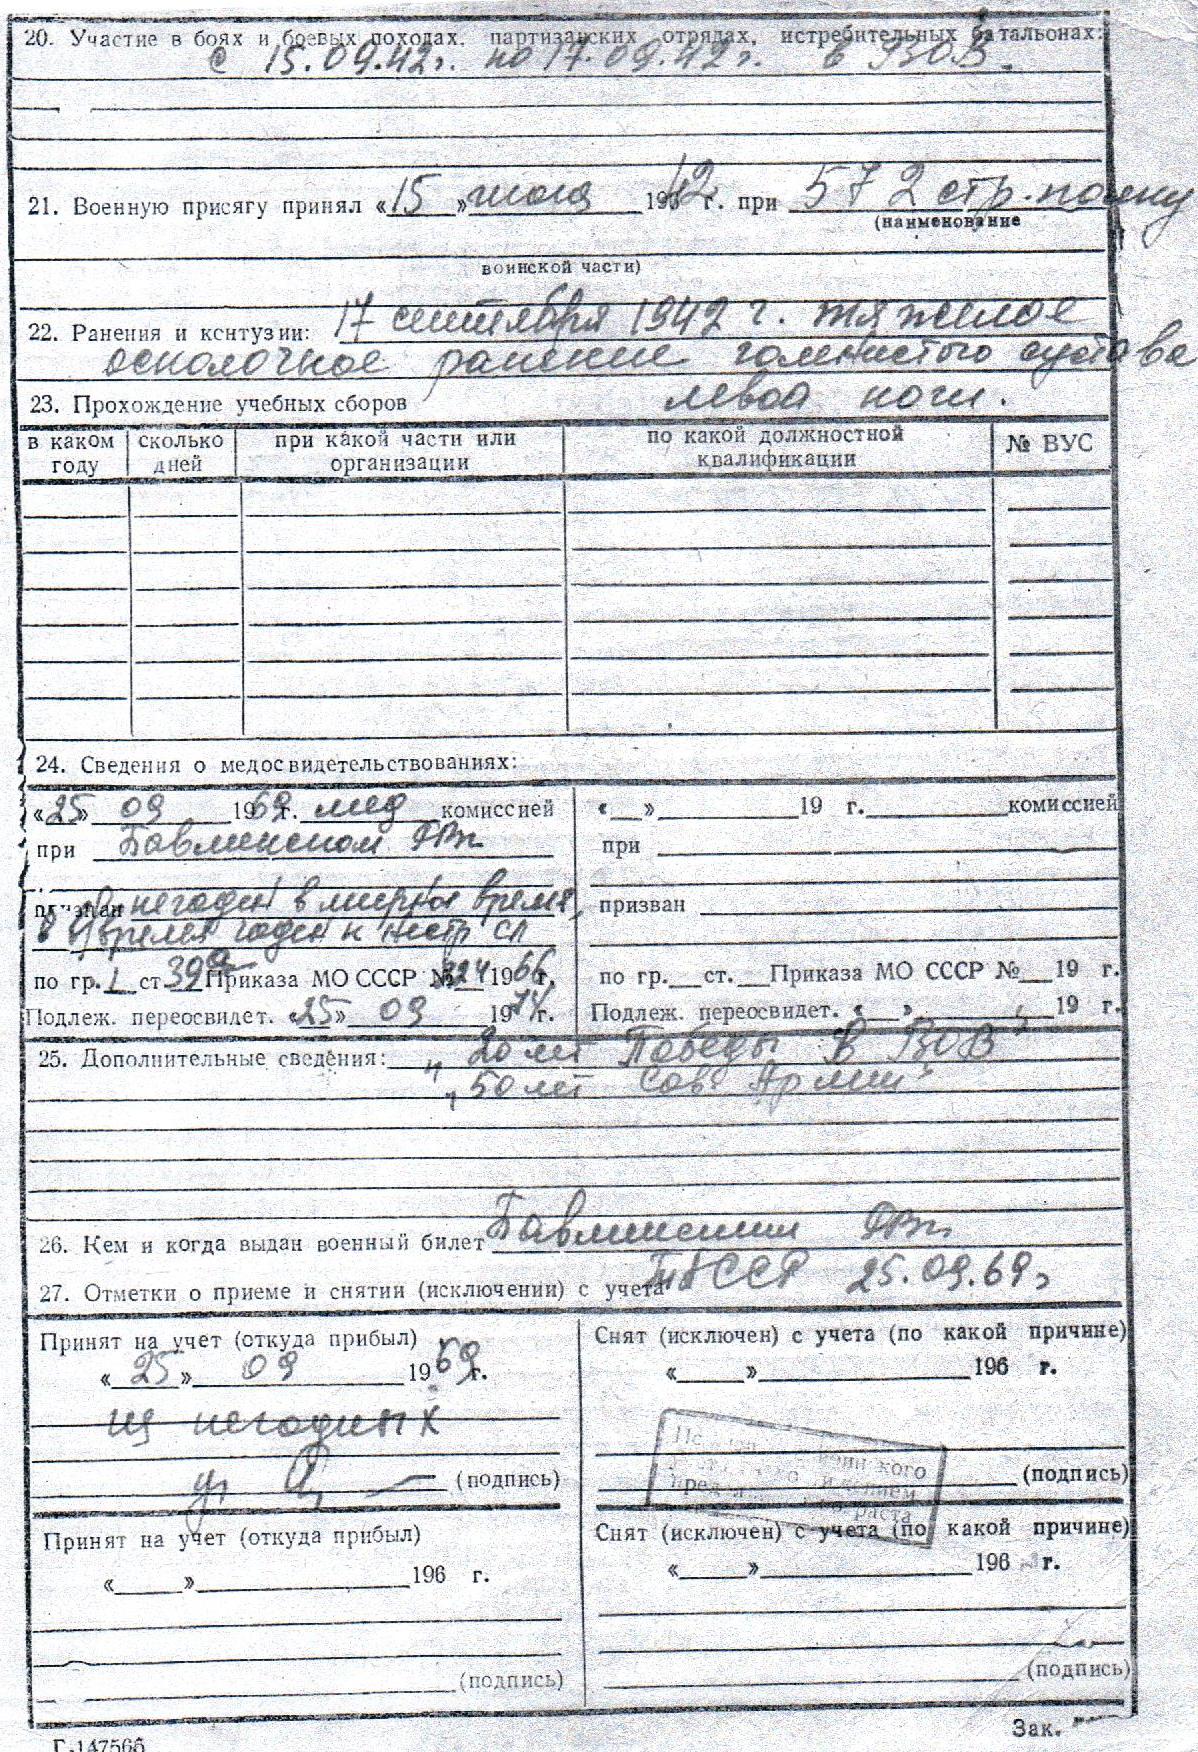 20. Участие в боях и боевых походах, партизанских отрядах, истребительных батальонах:
с 15.09.42г. по 17.09.42г. в ВОВ.
21. Военную присягу принял «15» 1942 г. при 572 стр. полку
(наименование
воинской части)
22. Ранения и контузии: 17 сентября 1942 г. тяжелое
осколочное ранение голенистого сустава
левой ноги.
23. Прохождение учебных сборов
в каком году сколько дней при какой части или организации по какой должностной квалификации № ВУС
24. Сведения о медосвидетельствованиях:
«25» 09 1969 г. мед комиссией
при Бавлинском РВК
признан негоден в мирное время,
в время годен к нестр сл
по гр. I ст. 39 Приказа МО СССР № 324 1966 г.
Подлеж. переосвидет. «25» 09 1974 г.
«__» 19 г. комиссией
при
призван
по гр.__ст.__Приказа МО СССР №__19 г.
Подлеж. переосвидет. «__» 19 г.
25. Дополнительные сведения: „20 лет Победы в ВОВ"
„50 лет Сов Армии"
26. Кем и когда выдан военный билет Бавлинским РВК
ТАССР 25.09.69г
27. Отметки о приеме и снятии (исключении) с учета
Принят на учет (откуда прибыл)
«25» 09 1969 г.
из негодных
(подпись)
Снят (исключен) с учета (по какой причине)
«__» 196 г.
(подпись)
Принят на учет (откуда прибыл)
«__» 196 г.
(подпись)
Снят (исключен) с учета (по какой причине)
«__» 196 г.
(подпись)
Зак.
Г-147566